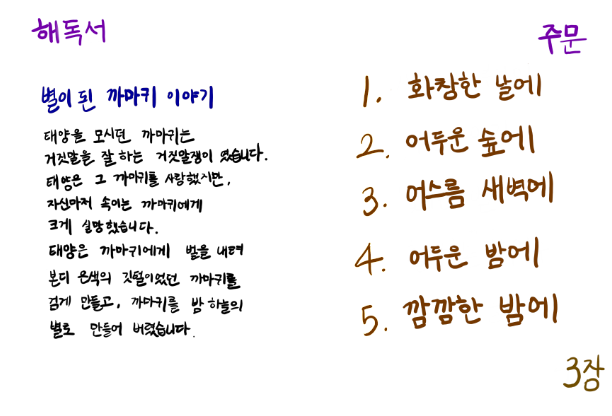 해독서
주문
별이 된 까마귀 이야기
태양을 모시던 까마귀는
거짓말을 잘 하는 거짓말쟁이 였습니다.
태양은 그 까마귀를 사랑했지만,
자신마저 속이는 까마귀에게
크게 실망했습니다.
태양은 까마귀에게 벌을 내려
본디 은색의 깃털이었던 까마귀를
검게 만들고, 까마귀를 밤 하늘의
별로 만들어 버렸습니다.
1. 화창한 날에
2. 어두운 숲에
3. 어스름 새벽에
4. 어두운 밤에
5. 깜깜한 밤에
3장